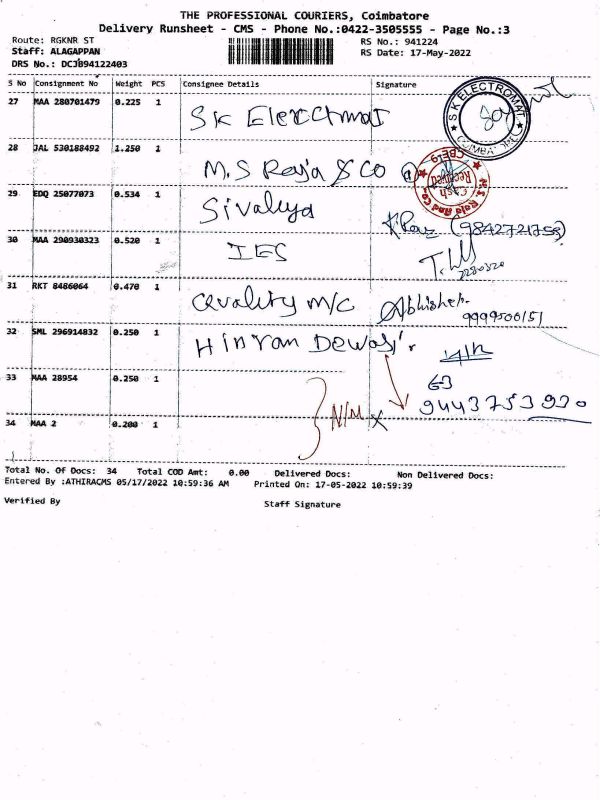 THE PROFESSIONAL COURIERS, Coimbatore
Delivery Runsheet - CMS - Phone No.:0422-3505555 - Page No.:3
Route: RGKNR ST RS No.: 941224
Staff: ALAGAPPAN RS Date: 17-May-2022
DRS No.: DCJB94122403
S No Consignment No Weight PCS Consignee Details Signature
27 MAA 280701479 0.225 1 SK Electmat S K ELECTROMAT
28 JAL 530188492 1.250 1 M.S Raja & Co Cash Received CBE-9
29 EDQ 25077073 0.534 1 Sivaliya (9842721753)
30 MAA 290930323 0.520 1 IES
31 RKT 8486064 0.470 1 Quality M/C Abhishek
32 SML 296914832 0.250 1 Hinran Dewasi
33 MAA 28954 0.250 1
9443753930
34 MAA 2 0.200 1 N/M X
Total No. Of Docs: 34 Total COD Amt: 0.00 Delivered Docs: Non Delivered Docs:
Entered By :ATHIRACMS 05/17/2022 10:59:36 AM Printed On: 17-05-2022 10:59:39
Verified By Staff Signature